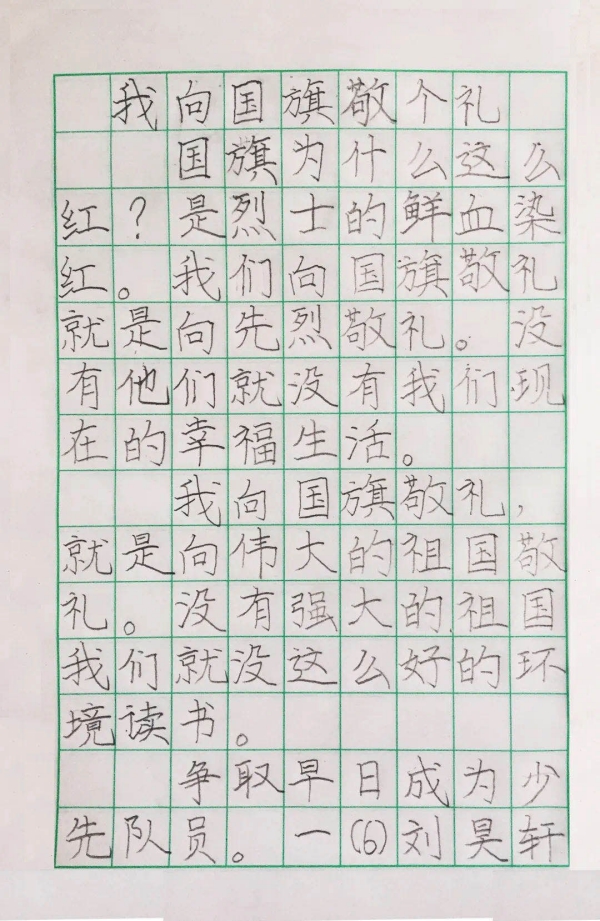 我向国旗敬个礼
国旗为什么这么
红?是烈士的鲜血染
红。我们向国旗敬礼
就是向先烈敬礼。没
有他们就没有我们现
在的幸福生活。
我向国旗敬礼,
就是向伟大的祖国敬
礼。没有强大的祖国
我们就没这么好的环
境读书。
争取早日成为少
先队员。一(6)刘昊轩